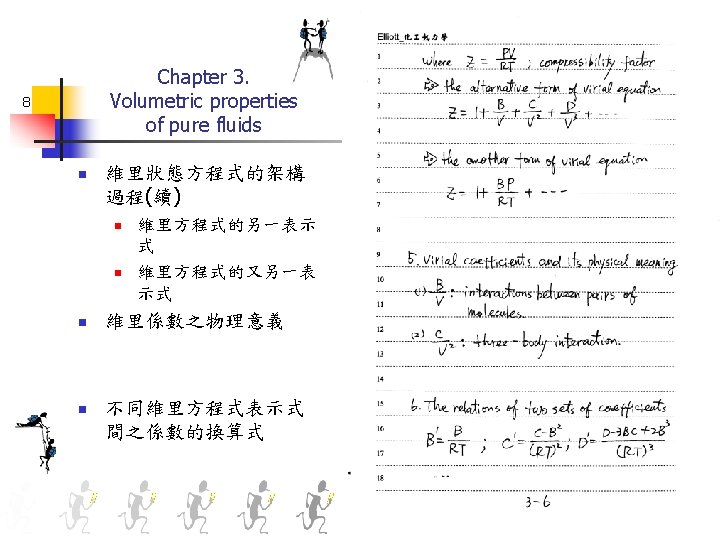 Chapter 3.
Volumetric properties
of pure fluids
8
維里狀態方程式的架構
過程(續)
維里方程式的另一表示
式
維里方程式的又另一表
示式
維里係數之物理意義
不同維里方程式表示式
間之係數的換算式
Elliott_化工熱力學
1
where Z = PV/RT ; compressibility factor
2
⇒ the alternative form of virial equation
3
Z = 1 + B/V + C/V² + D/V³ + ···
4
5
⇒ the another form of virial equation
6
Z = 1 + BP/RT + ---
7
8
9
5. Virial coefficients and its physical meaning
10
(1) B/V : interactions between pairs of
11
molecules.
12
(2) C/V² : three-body interaction.
13
14
15
6. The relations of two sets of coefficients
16
B' = B/RT ; C' = C-B²/(RT)² , D' = D-3BC+2B³/(RT)³
17
18
---
3-6